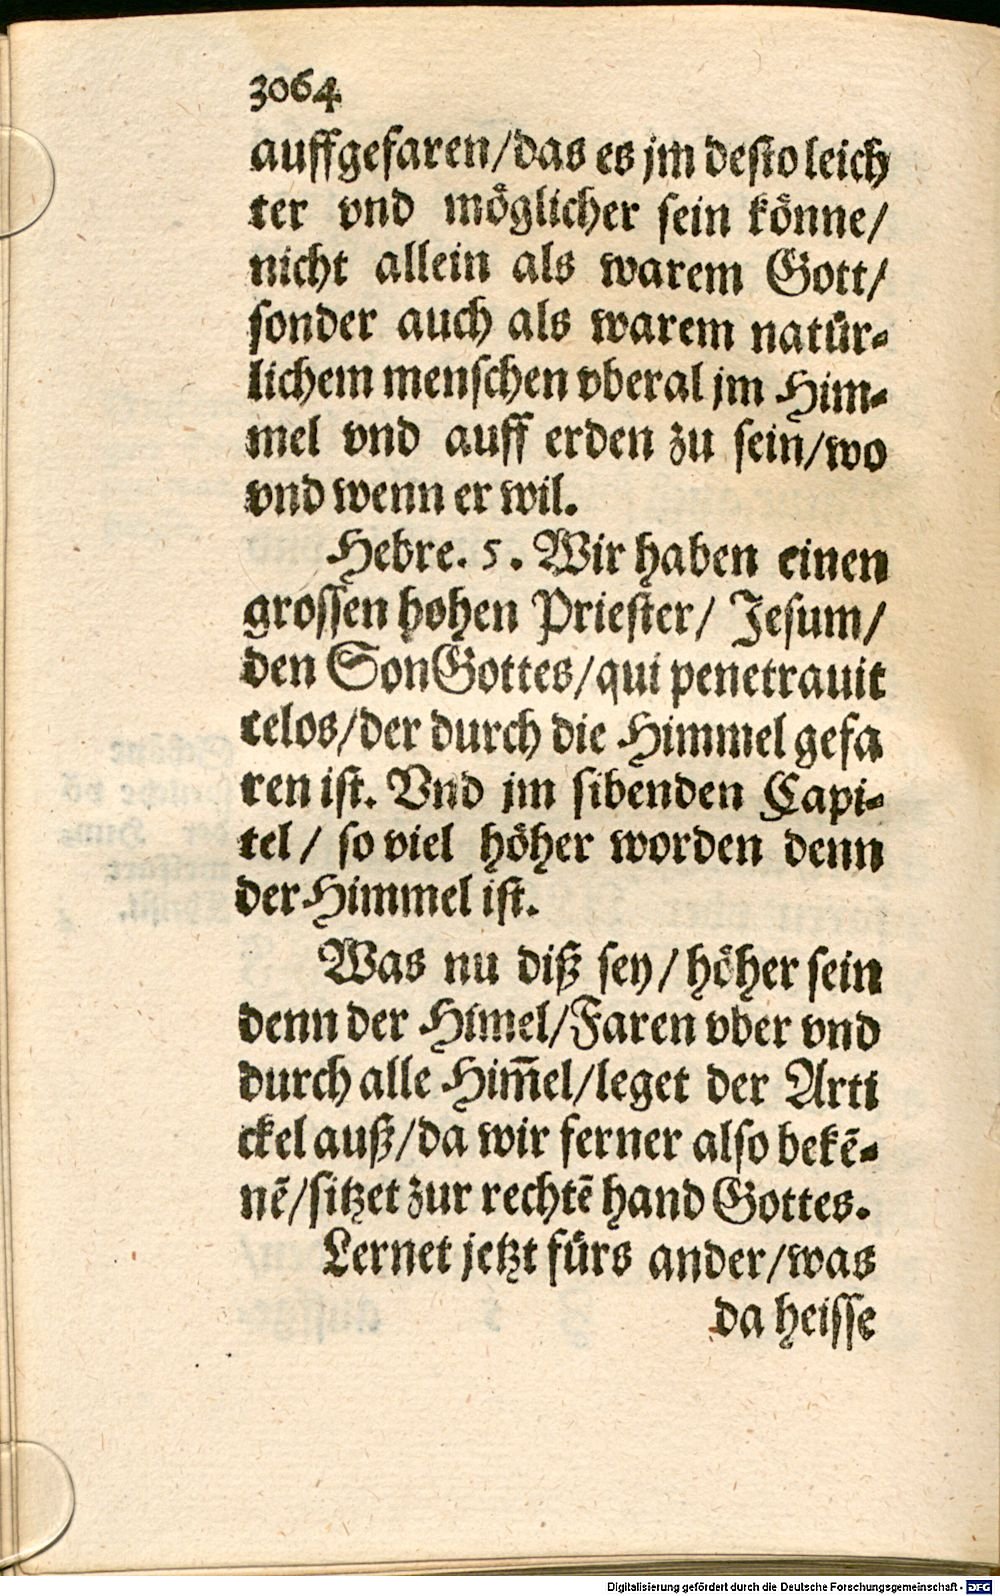 3064
auffgefaren/das es jm desto leich
ter vnd möglicher sein könne/
nicht allein als warem Gott/
sonder auch als warem natür-
lichem menschen vberal jm Him-
mel vnd auff erden zu sein/wo
vnd wenn er wil.
Hebre. 5. Wir haben einen
grossen hohen Priester/ Jesum/
den Son Gottes/qui penetrauit
celos/der durch die Himmel gefa
ren ist. Vnd jm sibenden Capi-
tel/ so viel höher worden denn
der Himmel ist.
Was nu diß sey/ höher sein
denn der Himel/Faren vber vnd
durch alle Him̄el/leget der Arti
ckel auß/da wir ferner also bekē-
nē/sitzet zur rechtē hand Gottes.
Lernet jetzt fürs ander/was
da heisse
Digitalisierung gefördert durch die Deutsche Forschungsgemeinschaft - DFG